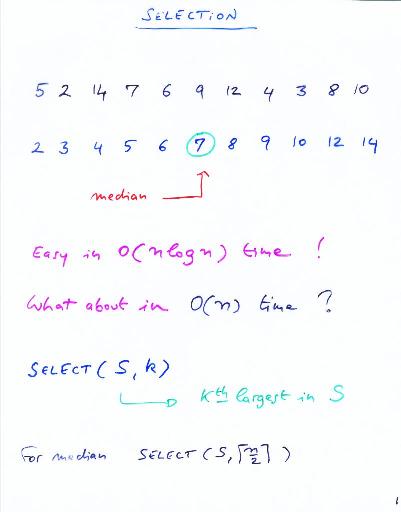 SELECTION
5 2 14 7 6 9 12 4 3 8 10
2 3 4 5 6 7 8 9 10 12 14
median
Easy in O(n log n) time !
What about in O(n) time ?
SELECT(S, k)
Kth largest in S
For median SELECT(S, ⌈n/2⌉)
1